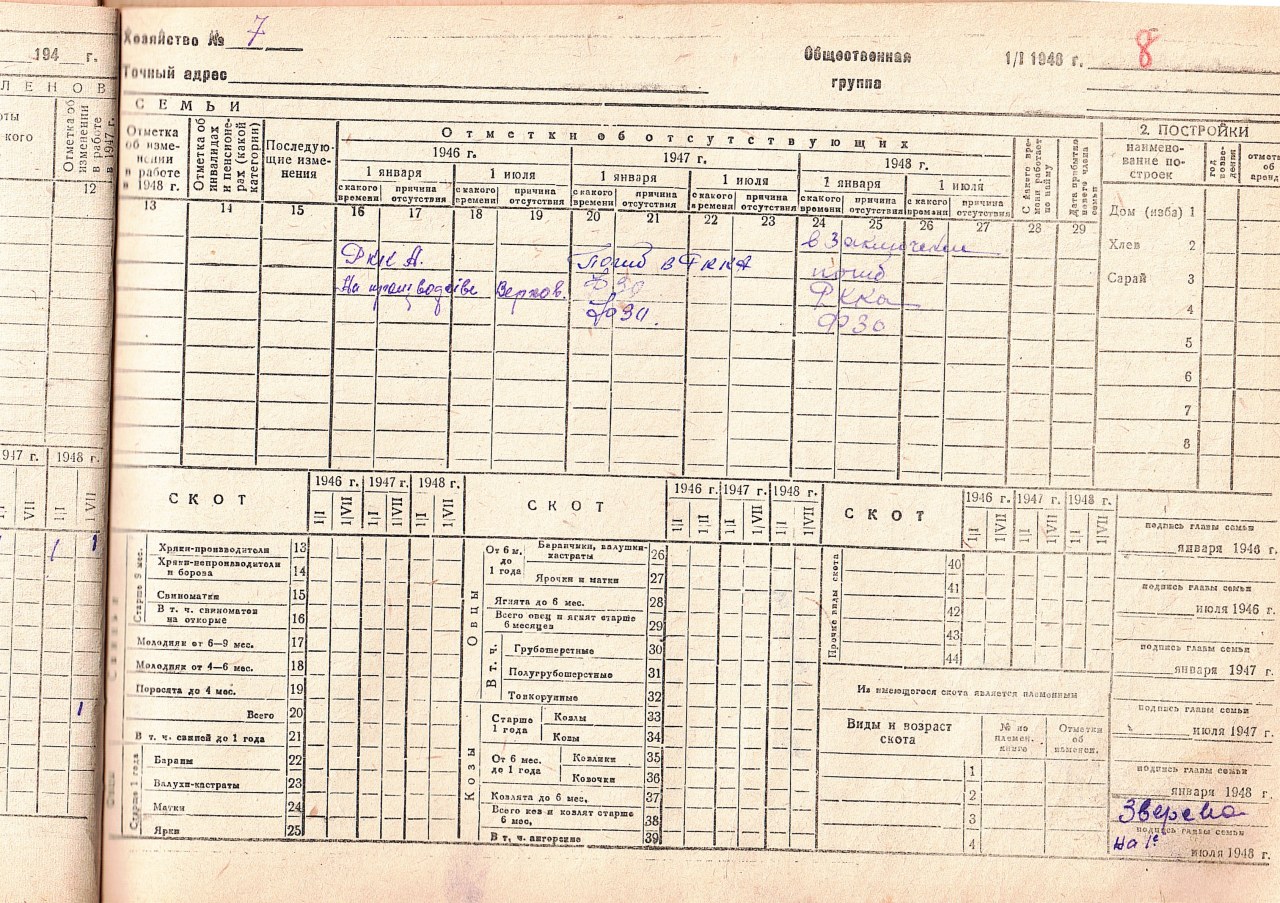 194 г.
ЛЕНОВ
кого
Отметка об изменении в работе в 1947 г.
12
1947 г. 1948 г.
VII 1/I 1/VII
Хозяйство № 7
Общественная группа
1/I 1948 г. 8
Точный адрес
СЕМЬИ
Отметка об изменении в работе в 1948 г.
Отметка об инвалидах и пенсионерах (какой категории)
Последующие изменения
Отметки об отсутствующих
1946 г. 1947 г. 1948 г.
1 января 1 июля 1 января 1 июля 1 января 1 июля
с какого времени причина отсутствия с какого времени причина отсутствия с какого времени причина отсутствия с какого времени причина отсутствия с какого времени причина отсутствия с какого времени причина отсутствия
С какого времени работает по найму
Дата прибытия нового члена семьи
13 14 15 16 17 18 19 20 21 22 23 24 25 26 27 28 29
в Заключении
РККА. Погиб в РККА погиб
На производстве Верхов. ФЗО РККА
ФЗО. ФЗО
2. ПОСТРОЙКИ
наименование построек
год возведения
Дом (изба) 1
Хлев 2
Сарай 3
4
5
6
7
8
СКОТ
1946 г. 1947 г. 1948 г.
1/I 1/VII 1/I 1/VII 1/I 1/VII
Старше 9 мес.
Хряки-производители 13
Хряки-непроизводители и борова 14
Свиноматки 15
В т. ч. свиноматки на откорме 16
Молодняк от 6—9 мес. 17
Молодняк от 4—6 мес. 18
Поросята до 4 мес. 19
Всего 20
В т. ч. свиней до 1 года 21
Старше 1 года
Бараны 22
Валухи-кастраты 23
Матки 24
Ярки 25
СКОТ
1946 г. 1947 г. 1948 г.
1/I 1/VII 1/I 1/VII 1/I 1/VII
Овцы
От 6 м. до 1 года
Баранчики, валушки-кастраты 26
Ярочки и матки 27
Ягнята до 6 мес. 28
Всего овец и ягнят старше 6 месяцев 29
В т. ч.
Грубошерстные 30
Полугрубошерстные 31
Тонкорунные 32
Козы
Старше 1 года
Козлы 33
Козы 34
От 6 мес. до 1 года
Козлики 35
Козочки 36
Козлята до 6 мес. 37
Всего коз и козлят старше 6 мес. 38
В т. ч. ангорские 39
СКОТ
1946 г. 1947 г. 1948 г.
1/I 1/VII 1/I 1/VII 1/I 1/VII
Прочие виды скота
40
41
42
43
44
Из имеющегося скота является племенным
Виды и возраст скота
№ по племен. книге
Отметки об изменен.
1
2
3
4
подпись главы семьи
января 1946 г.
подпись главы семьи
июля 1946 г.
подпись главы семьи
января 1947 г.
подпись главы семьи
июля 1947 г.
подпись главы семьи
января 1948 г.
Зверева
подпись главы семьи
на 1е июля 1948 г.